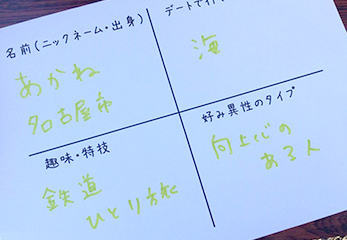 名前(ニックネーム・出身)
あかね
名古屋市
デートで行
海
趣味・特技
鉄道
ひとり旅
好み異性のタイプ
向上心の
ある人